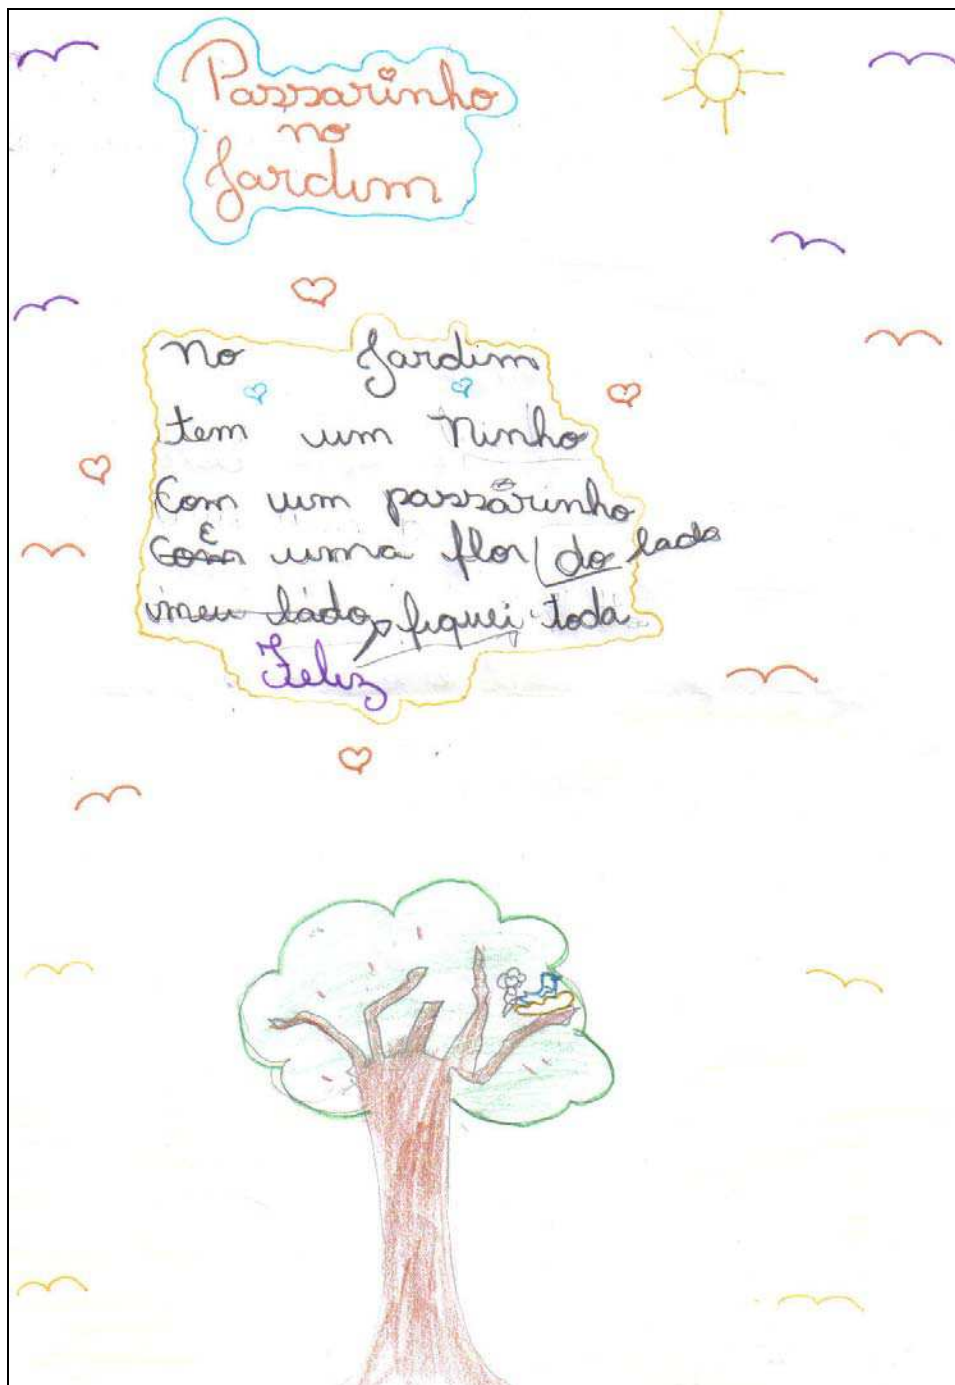 Passarinho
no
Jardim
no Jardim
tem um Ninho
Com um passarinho
E uma flor do lado
meu lado, fiquei toda
Feliz